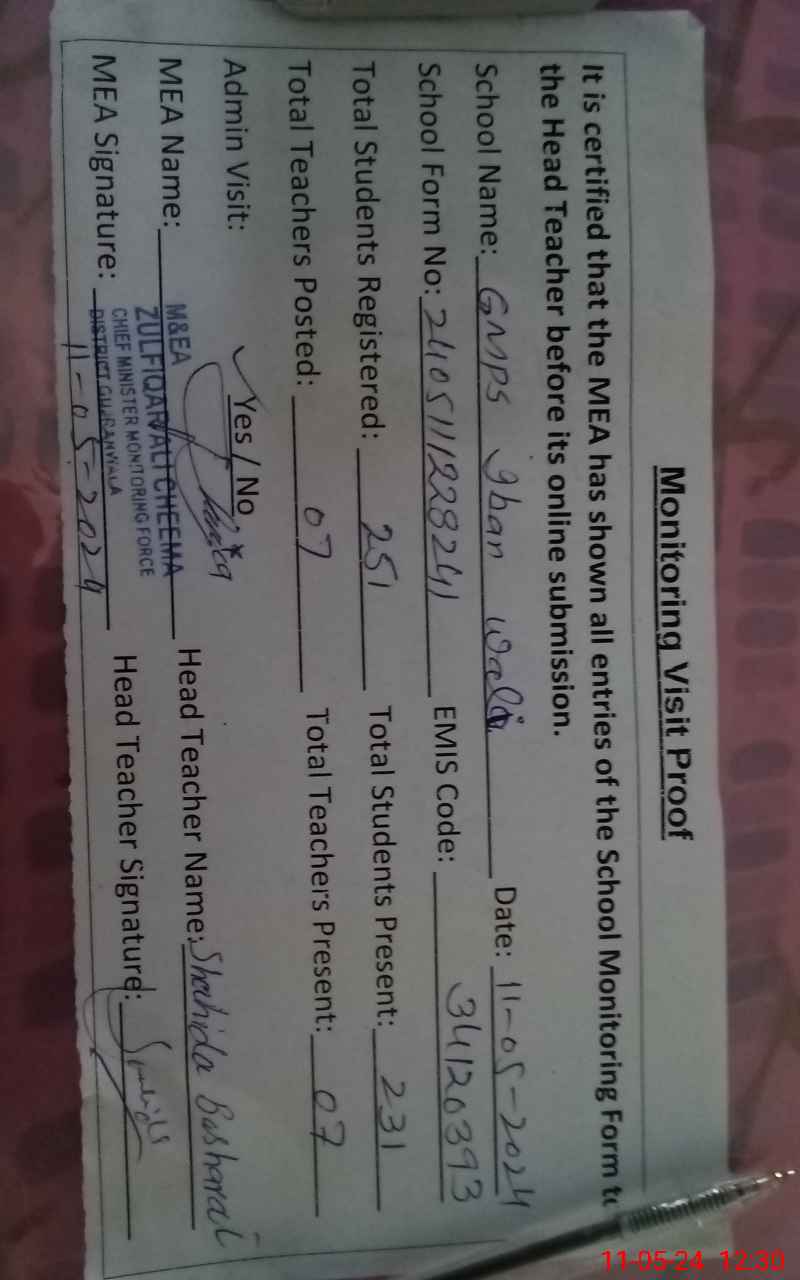 Monitoring Visit Proof
It is certified that the MEA has shown all entries of the School Monitoring Form to
the Head Teacher before its online submission.
School Name: GMPS Wali Date: 11-05-2024
School Form No: 2405111228241 EMIS Code: 34120393
Total Students Registered: 251 Total Students Present: 231
Total Teachers Posted: 07 Total Teachers Present: 07
Admin Visit: Yes / No
MEA Name: Head Teacher Name: Shahida Basharat
MEA Signature: Head Teacher Signature:
M&EA
ZULFIQAR ALI CHEEMA
CHIEF MINISTER MONITORING FORCE
DISTRICT GUJRANWALA
11-05-2024
11-05-24 12:30